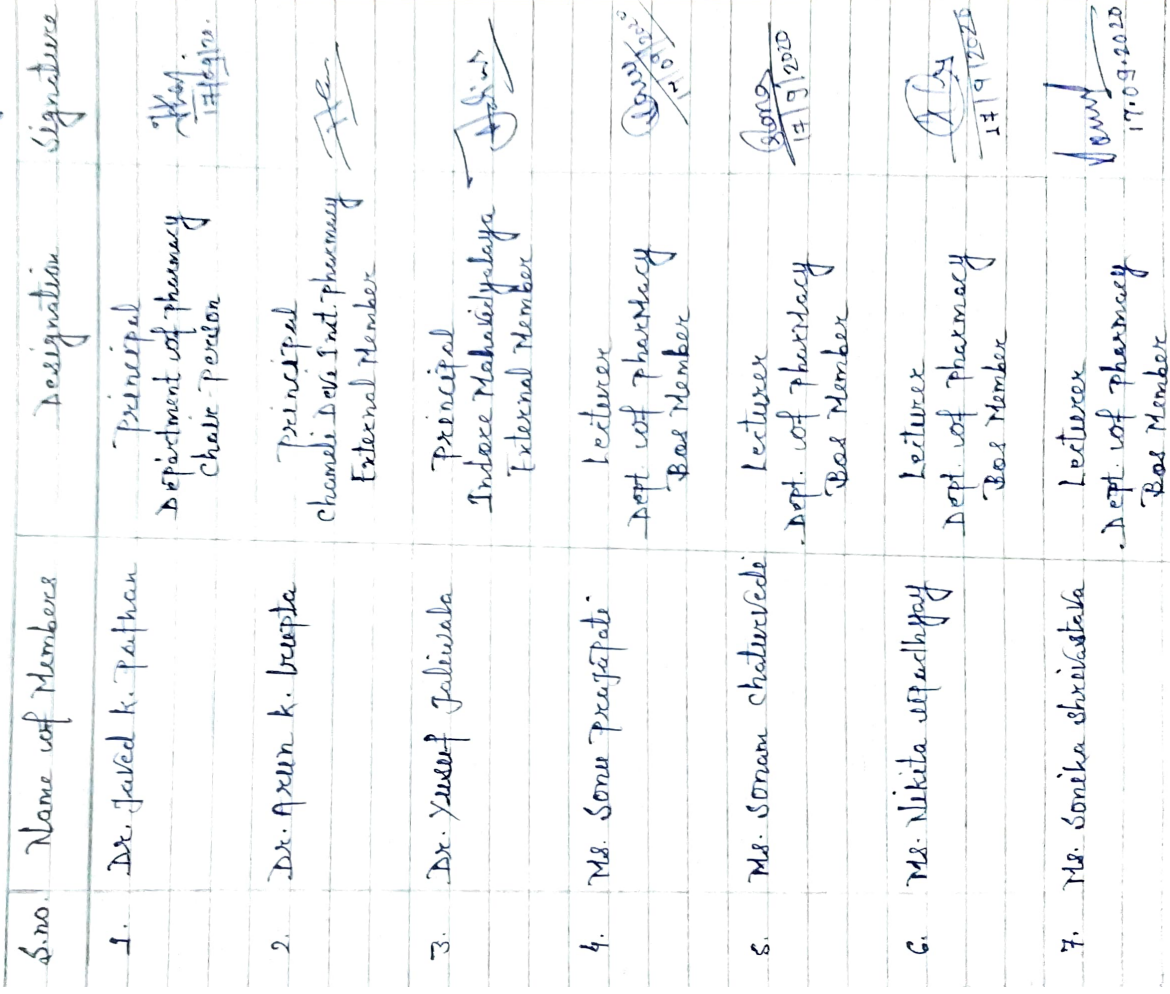 S.no. Name of Members Designation Signature
1. Dr. Javed K. Pathan Principal
Department of pharmacy
Chair-Person
17/09/20.
2. Dr. Arun K. Gupta Principal
Chameli Devi Inst. pharmacy
External Member
3. Dr. Yusuf Jaliwala Principal
Indore Mahavidyalaya
External Member
4. Ms. Sonu Prajapati Lecturer
Dept. of Pharmacy
Bos Member
17/09/2020
5. Ms. Sonam Chaturvedi Lecturer
Dept. of Pharmacy
Bos Member
17/9/2020
6. Ms. Nikita Upadhyay Lecturer
Dept. of Pharmacy
Bos Member
17/9/2020
7. Ms. Sonika Shrivastava Lecturer
Dept. of Pharmacy
Bos Member
17.09.2020